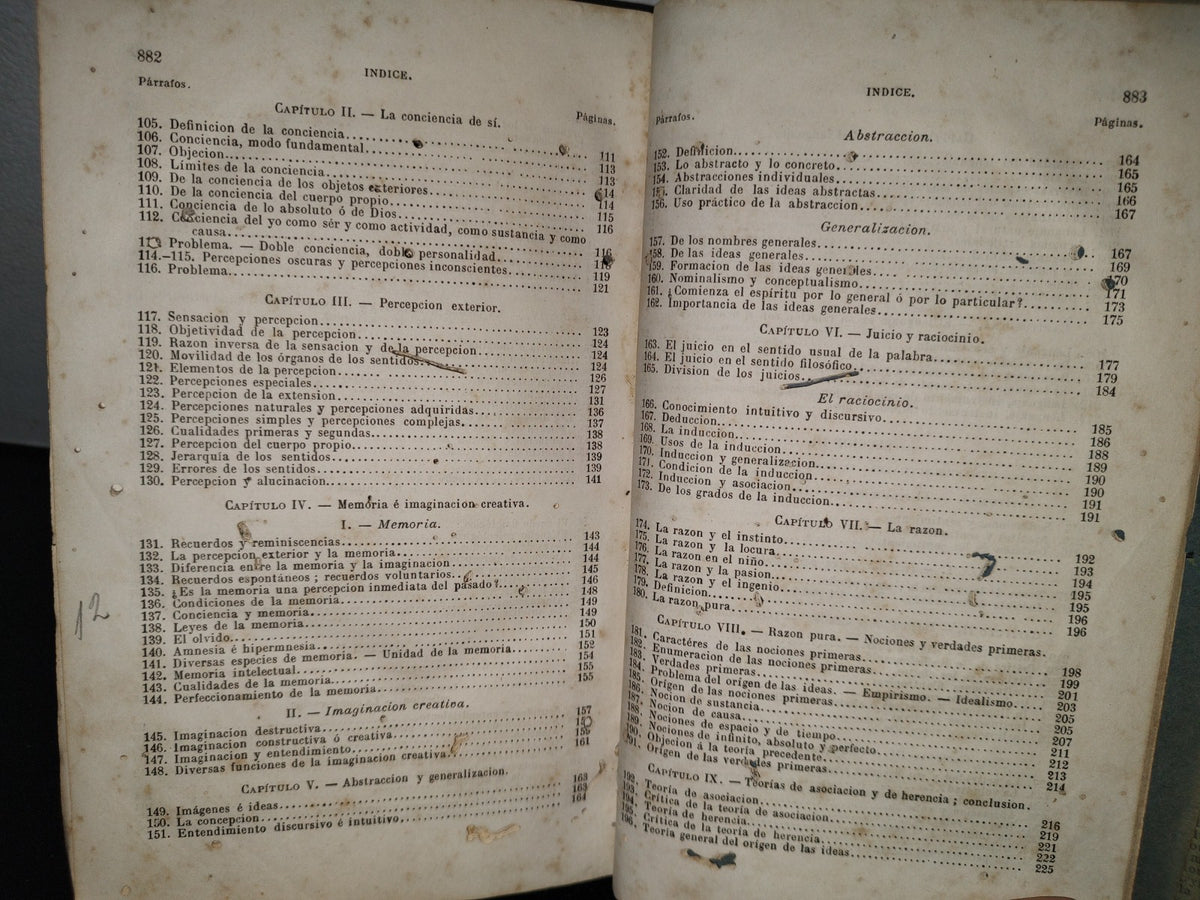 882
INDICE.
Párrafos.
CAPÍTULO II. — La conciencia de sí.
Páginas.
105. Definicion de la conciencia 111
106. Conciencia, modo fundamental 113
107. Objecion 113
108. Límites de la conciencia 114
109. De la conciencia de los objetos exteriores 114
110. De la conciencia del cuerpo propio 115
111. Conciencia de lo absoluto ó de Dios 116
112. Conciencia del yo como sér y como actividad, como sustancia y como
causa 116
113. Problema. — Doble conciencia, doble personalidad
114.-115. Percepciones oscuras y percepciones inconscientes 119
116. Problema 121
CAPÍTULO III. — Percepcion exterior.
117. Sensacion y percepcion 123
118. Objetividad de la percepcion 124
119. Razon inversa de la sensacion y de la percepcion 124
120. Movilidad de los órganos de los sentidos 124
121. Elementos de la percepcion 126
122. Percepciones especiales 127
123. Percepcion de la extension 131
124. Percepciones naturales y percepciones adquiridas 136
125. Percepciones simples y percepciones complejas 137
126. Cualidades primeras y segundas 138
127. Percepcion del cuerpo propio 138
128. Jerarquía de los sentidos 139
129. Errores de los sentidos 139
130. Percepcion y alucinacion 141
CAPÍTULO IV. — Memoria é imaginacion creativa.
I. — Memoria.
131. Recuerdos y reminiscencias 143
132. La percepcion exterior y la memoria 144
133. Diferencia entre la memoria y la imaginacion 144
134. Recuerdos espontáneos; recuerdos voluntarios 145
135. ¿Es la memoria una percepcion inmediata del pasado? 146
136. Condiciones de la memoria 148
137. Conciencia y memoria 149
138. Leyes de la memoria 149
139. El olvido 150
140. Amnesia é hipermnesia 151
141. Diversas especies de memoria. — Unidad de la memoria 152
142. Memoria intelectual 154
143. Cualidades de la memoria 155
144. Perfeccionamiento de la memoria 155
12
II. — Imaginacion creativa.
145. Imaginacion destructiva 157
146. Imaginacion constructiva ó creativa
147. Imaginacion y entendimiento 159
148. Diversas funciones de la imaginacion creativa 161
CAPÍTULO V. — Abstraccion y generalizacion.
149. Imágenes é ideas 163
150. La concepcion 163
151. Entendimiento discursivo é intuitivo 164
INDICE.
883
Párrafos.
Páginas.
Abstraccion.
152. Definicion 164
153. Lo abstracto y lo concreto 165
154. Abstracciones individuales 165
155. Claridad de las ideas abstractas 166
156. Uso práctico de la abstraccion 167
Generalizacion.
157. De los nombres generales 167
158. De las ideas generales 169
159. Formacion de las ideas generales 170
160. Nominalismo y conceptualismo 171
161. ¿Comienza el espíritu por lo general ó por lo particular? 173
162. Importancia de las ideas generales 175
CAPÍTULO VI. — Juicio y raciocinio.
163. El juicio en el sentido usual de la palabra 177
164. El juicio en el sentido filosófico 179
165. Division de los juicios 184
El raciocinio.
166. Conocimiento intuitivo y discursivo 185
167. Deduccion 186
168. La induccion 188
169. Usos de la induccion 189
170. Induccion y generalizacion 190
171. Condicion de la induccion 190
172. Induccion y asociacion 191
173. De los grados de la induccion 191
CAPÍTULO VII. — La razon.
174. La razon y el instinto 192
175. La razon y la locura 193
176. La razon en el niño 194
177. La razon y la pasion 195
178. La razon y el ingenio 195
179. Definicion 196
180. La razon pura 196
CAPÍTULO VIII. — Razon pura. — Nociones y verdades primeras.
181. Caractéres de las nociones primeras 198
182. Enumeracion de las nociones primeras 199
183. Verdades primeras 201
184. Problema del orígen de las ideas. — Empirismo. — Idealismo 203
185. Orígen de las nociones primeras 205
186. Nocion de sustancia 205
187. Nocion de causa 207
188. Nociones de espacio y de tiempo 211
189. Nociones de infinito, absoluto y perfecto 212
190. Objecion á la teoría precedente 213
191. Orígen de las verdades primeras 214
CAPÍTULO IX. — Teorías de asociacion y de herencia; conclusion.
192. Teoría de asociacion 216
193. Crítica de la teoría de asociacion 219
194. Teoría de herencia 221
195. Crítica de la teoría de herencia 222
196. Teoría general del orígen de las ideas 225